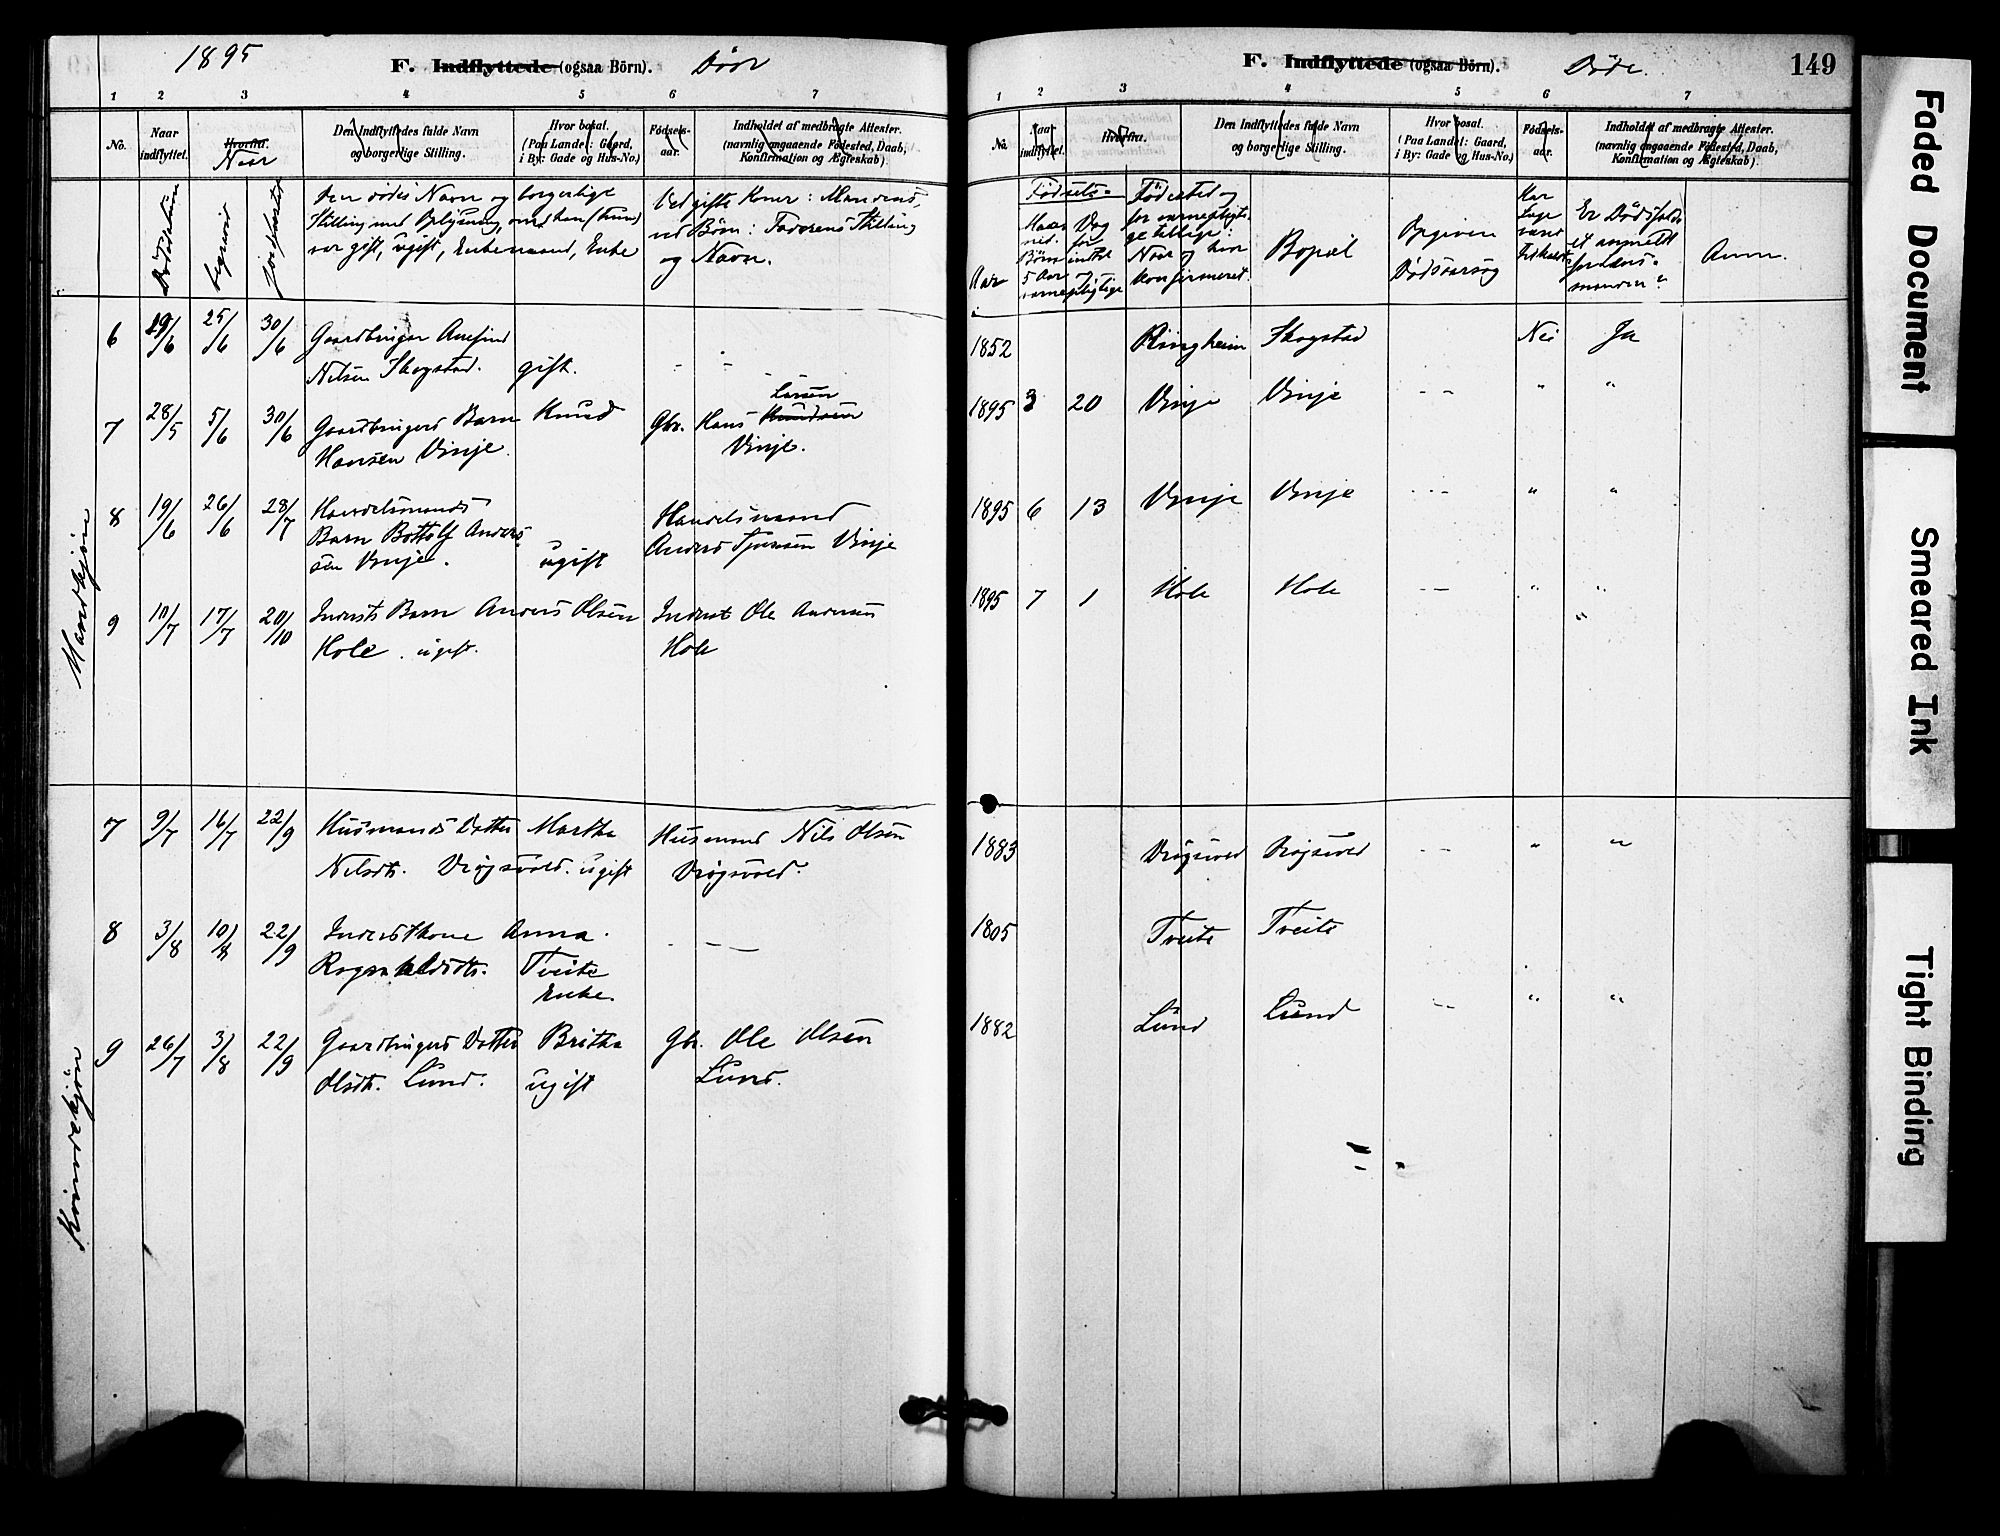 1895
F. Indflyttede (ogsaa Börn). Døde
1 2 3 4 5 6 7
No.
Naar indflyttet.
Hvorfra.
Naar
Den Indflyttedes fulde Navn og borgerlige Stilling.
Hvor bosat. (Paa Landet: Gaard, i By: Gade og Hus-No.)
Fødsels-aar.
Indholdet af medbragte Attester. (navnlig angaaende Fødested, Daab, Konfirmation og Ægteskab).
Dødsdatum
begravet
jordfæstet
Den dødes Navn og borgerlige
Stilling med Oplysning, om han (hun)
var gift, ugift, Enkemand, Enke
Ved gifte Koner: Mandens,
ved Børn: Faderens Stilling
og Navn.
Mandkjøn
6 19/6 25/6 30/6 Gaardbruger Amfind
Nilsen Skogstad. gift. - -
7 28/5 5/6 30/6 Gaardbrugers Barn Knud Gbr. Hans Knudsen Larsen
Hansen Vinje. Vinje.
8 19/6 26/6 28/7 Handelsmands Handelsmand
Barn Bottolf Anders- Anders Vinje
sen Vinje. ugift
9 10/7 17/7 20/10 Inderts Barn Anders Olsen Inderst Ole Andersen
Hole. ugift. Hole
Kvindekjøn
7 9/7 16/7 22/9 Husmands Datter Martha Husmand Nils Olsen
Nilsdtr. Drøgsvold. ugift Drøgsvold.
8 3/8 10/8 22/9 Inderstkone Anna - - -
Ragnhildsdtr. Tveite
Enke.
9 26/7 3/8 22/9 Gaardbrugers Datter Britha Gbr. Ole Olsen
Olsdtr. Lund. ugift Lund.
F. Indflyttede (ogsaa Börn). Døde.
149
1 2 3 4 5 6 7
No.
Naar indflyttet.
Hvorfra.
Den Indflyttedes fulde Navn og borgerlige Stilling.
Hvor bosat. (Paa Landet: Gaard, i By: Gade og Hus-No.)
Fødsels-aar.
Indholdet af medbragte Attester. (navnlig angaaende Fødested, Daab, Konfirmation og Ægteskab).
Fødsels-
Aar
Maaned. Dag
for Børn indtil
5 Aar og
værnepligtige
Fødested og
for værnepligti-
ge tillige:
Naar og hvor
konfirmeret.
Bopæl
Opgiven
Dødsaarsag
Har
Læge
været
tilkaldt
Er Dødsfaldet
anmeldt
for Lens-
manden?
Anm.
1852 Ringheim Skogstad - - Nei Ja
1895 3 20 Vinje Vinje - - " "
1895 6 13 Vinje Vinje - - - " "
1895 7 1 Hole Hole - - " "
"
1883 Drøgsvold Drøgsvold - - " "
1805 Tveite Tveite
1882 Lund Lund - - " "
Faded Document
Smeared Ink
Tight Binding